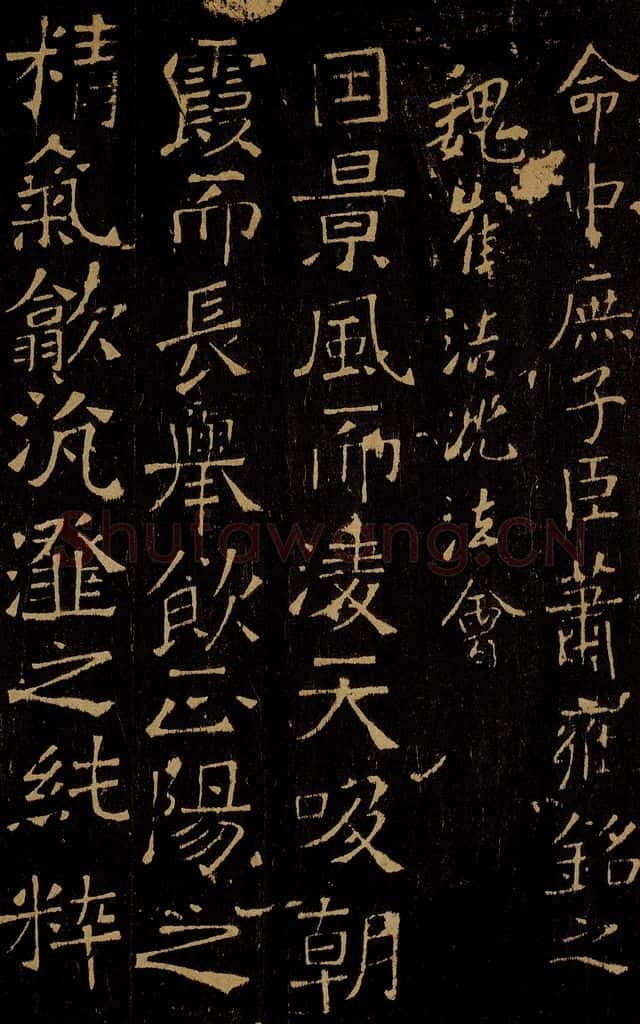 命中庶子臣蕭銘之
魏崔浩法會
因景風而淩天吸朝
霞而長舉飲正陽之
精氣歙沆瀣之純粹
Shufawang.CN